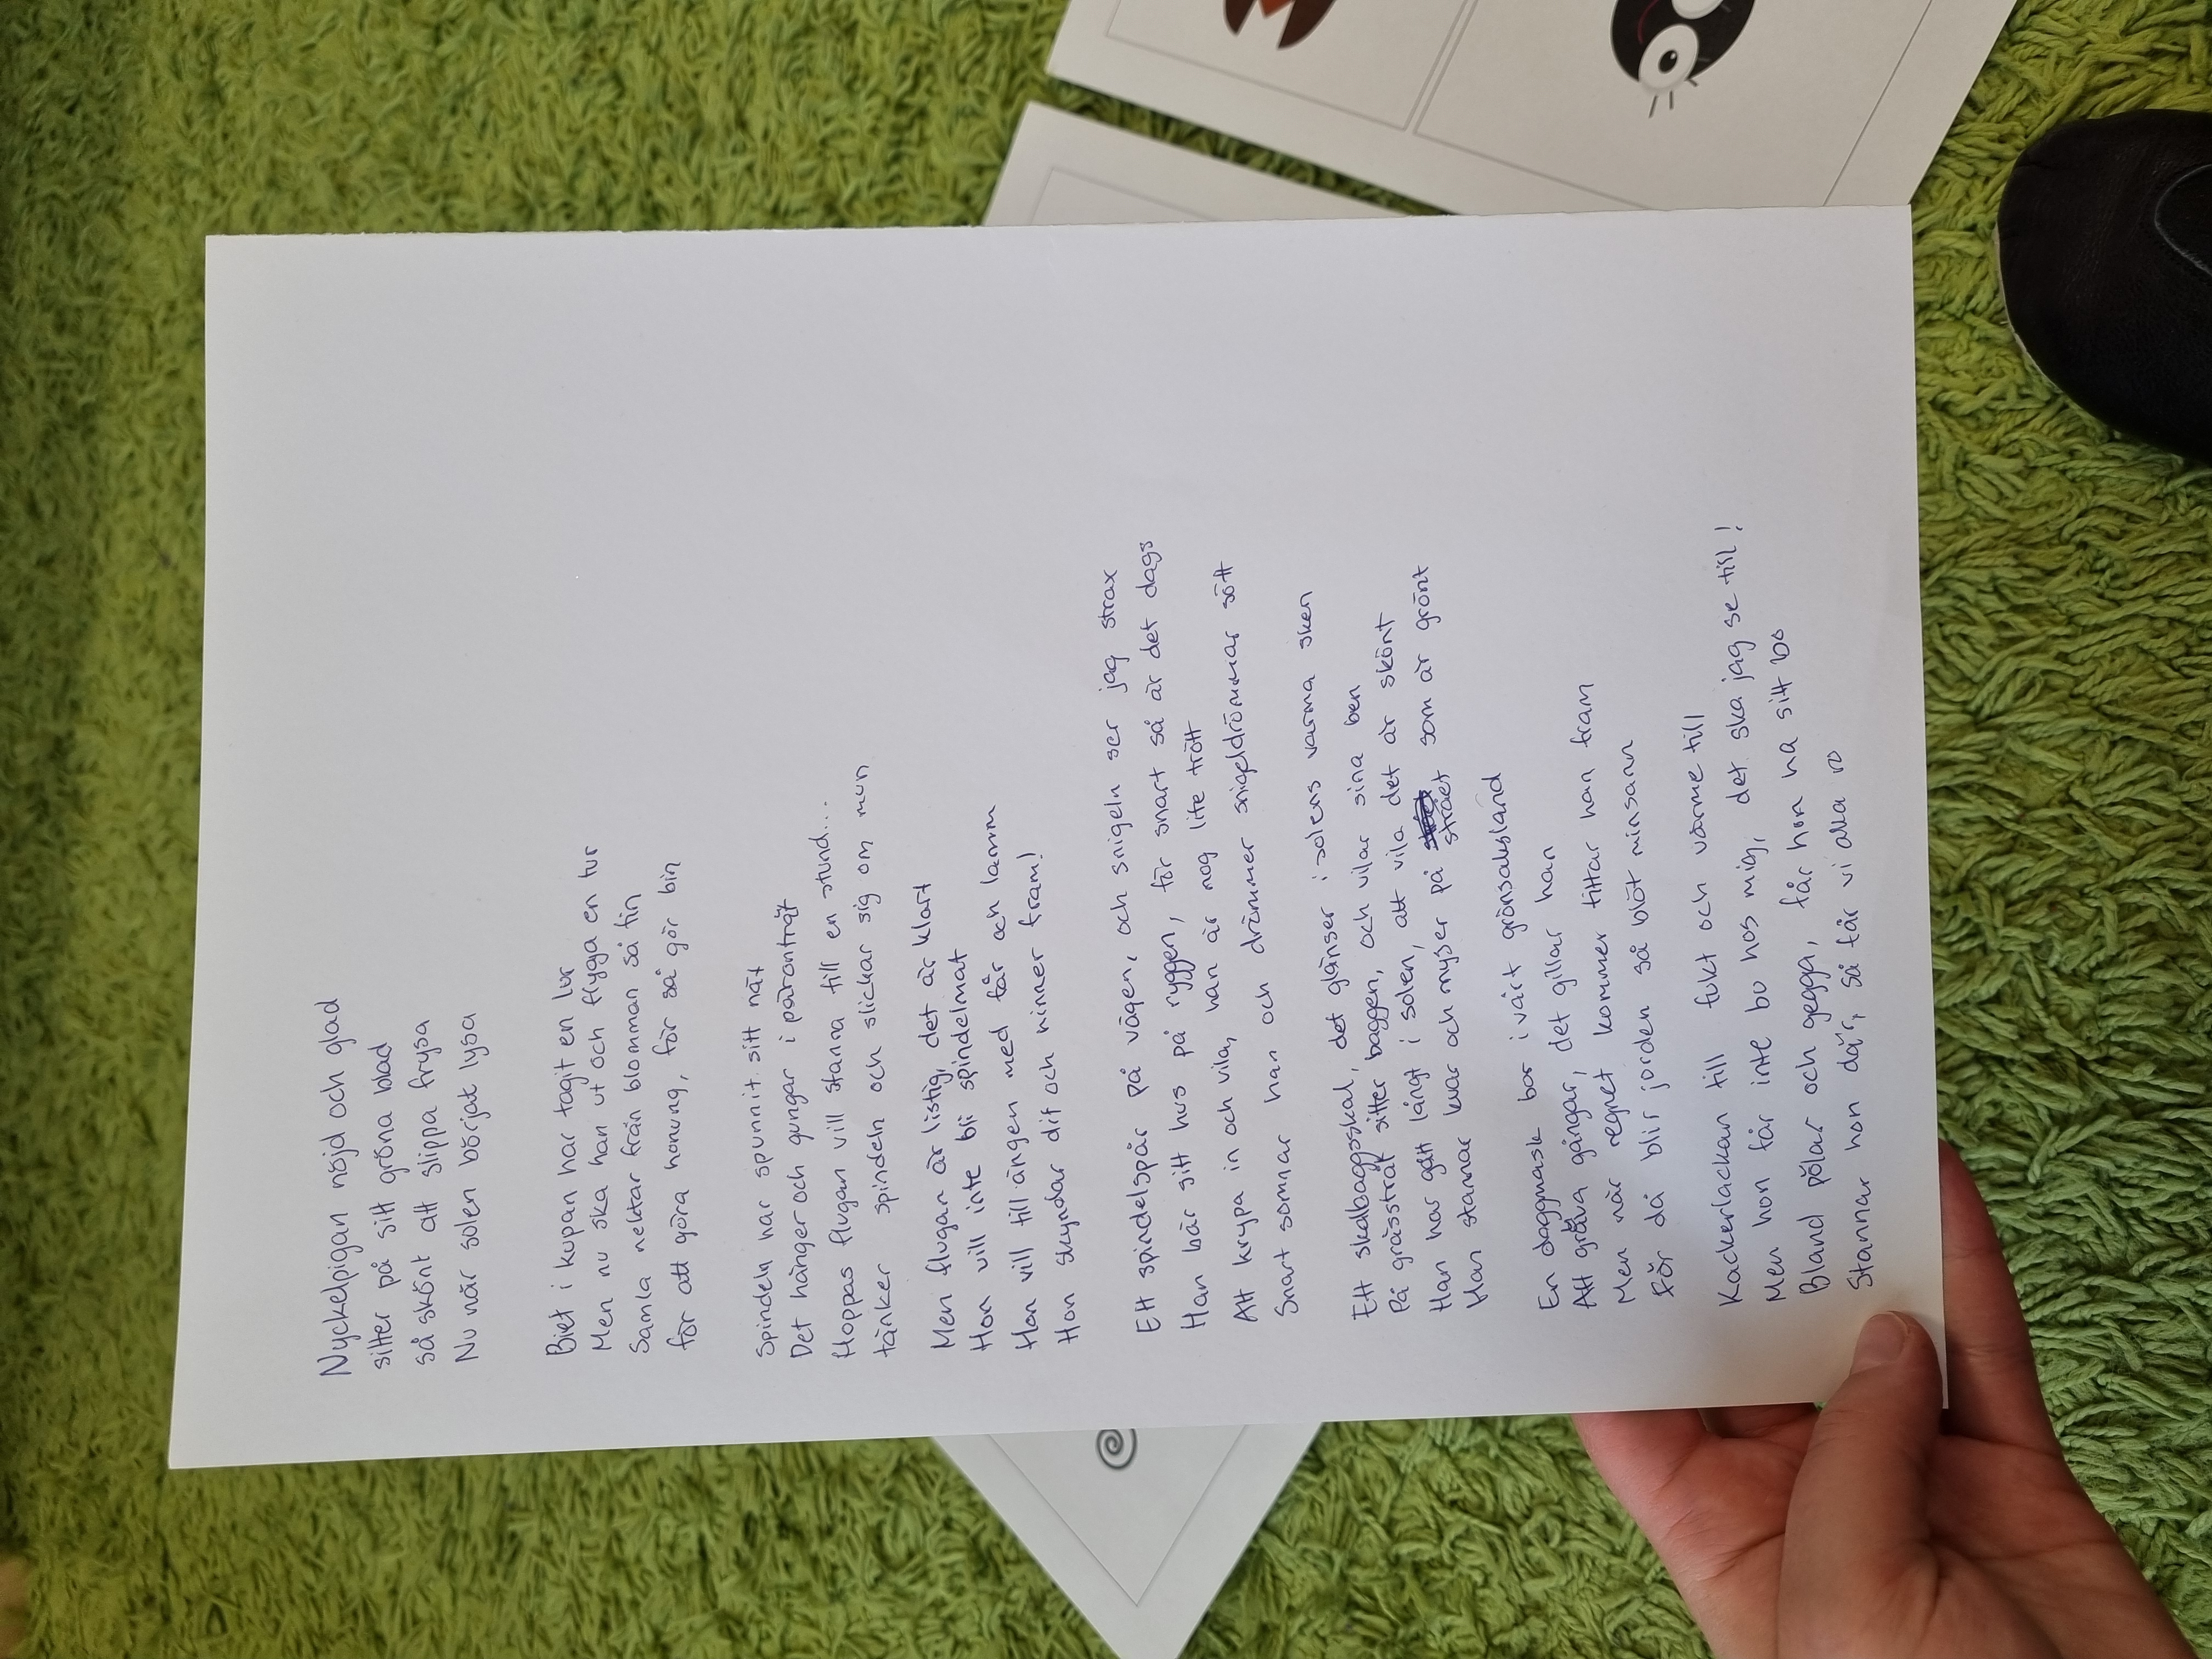 Nyckelpigan nöjd och glad
sitter på sitt gröna blad
så skönt att slippa frysa
Nu när solen börjat lysa
Biet i kupan har tagit en lur
Men nu ska han ut och flyga en tur
Samla nektar från blomman så fin
för att göra honung, för så gör bin
Spindeln har spunnit sitt nät
Det hänger och gungar i päronträt
Hoppas flugan vill stanna till en stund...
tänker spindeln och slickar sig om mun
Men flugan är listig, det är klart
Hon vill inte bli spindelmat
Hon vill till ängen med får och lamm
Hon skyndar dit och hinner fram!
Ett spindelspår på vägen, och snigeln ser jag strax
Han bär sitt hus på ryggen, för snart så är det dags
Att krypa in och vila, han är nog lite trött
Snart somnar han och drömmer snigeldrömmar sött
Ett skalbaggsskal, det glänser i solens varma sken
På grässtråt sitter baggen, och vilar sina ben
Han har gått långt i solen, att vila det är skönt
Han stannar kvar och myser på strået som är grönt
En daggmask bor i vårt grönsaksland
Att gräva gångar, det gillar han
Men när regnet kommer tittar han fram
För då blir jorden så blöt minsann
Kackerlackan till fukt och värme till
Men hon får inte bo hos mig, det ska jag se till!
Bland pölar och gegga, får hon ha sitt bo
Stannar hon där, så får vi alla ro